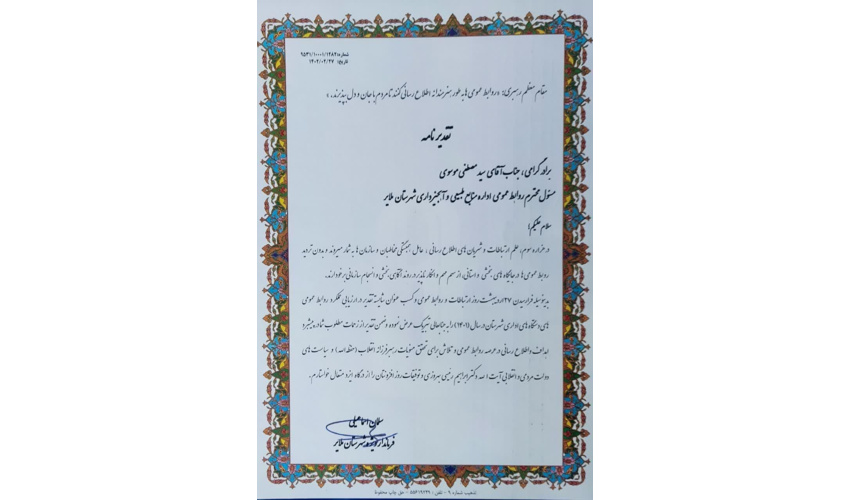 شماره: ۹۵۳۱/۱۰۰۰۱/۱۲۸۲
تاریخ: ۱۴۰۲/۰۲/۲۷
مقام معظم رهبری: «روابط عمومی ها به طور هنرمندانه اطلاع رسانی کنند تا مردم با جان و دل بپذیرند.»
تقدیر نامه
برادر گرامی، جناب آقای سید مصطفی موسوی
مسئول محترم روابط عمومی اداره منابع طبیعی و آبخیزداری شهرستان ملایر
سلام علیکم؛
در هزاره سوم، علم ارتباطات و شریان های اطلاع رسانی، عامل همبستگی مخاطبان و سازمان ها به شمار میروند و بدون تردید
روابط عمومی ها در جایگاه های بخشی و استانی، از سهم مهم و انکار ناپذیر در روند آگاهی بخشی و انسجام سازمانی برخوردارند.
بدینوسیله فرارسیدن ۲۷ اردیبهشت روز ارتباطات و روابط عمومی و کسب عنوان شایسته تقدیر در ارزیابی عملکرد روابط عمومی
های دستگاه های اداری شهرستان در سال (۱۴۰۱) را به جنابعالی تبریک عرض نموده و ضمن تقدیر از زحمات مطلوب شما در پیشبرد
اهداف و اطلاع رسانی در عرصه روابط عمومی و تلاش برای تحقق منویات رهبر فرزانه انقلاب (حفظه الله) و سیاست های
دولت مردمی و انقلابی آیت الله دکتر ابراهیم رئیسی بهروزی و توفیقات روز افزونتان را از درگاه ایزد متعال خواستارم.
سلمان اسماعیلی
فرماندار ویژه شهرستان ملایر
تذهیب شماره ۹ - تلفن: - حق چاپ محفوظ